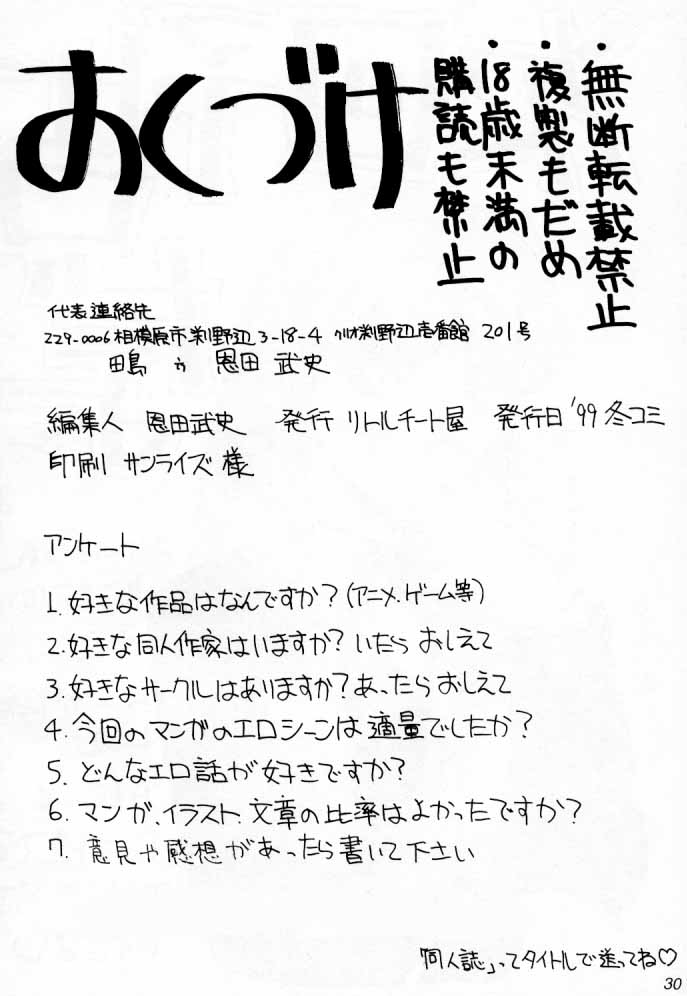 おくづけ
・無断転載禁止
・複製もだめ
・18歳未満の
購読も禁止
代表連絡先
229-0006 相模原市淵野辺 3-18-4 クリオ淵野辺壱番館 201号
恩田 武史
編集人 恩田武史 発行 リトルチート屋 発行日 '99 冬コミ
印刷 サンライズ 様
アンケート
1. 好きな作品はなんですか? (アニメ、ゲーム等)
2. 好きな同人作家はいますか? いたら おしえて
3. 好きなサークルはありますか? あったら おしえて
4. 今回のマンガのエロシーンは適量でしたか?
5. どんなエロ話が好きですか?
6. マンガ、イラスト、文章の比率はよかったですか?
7. 意見や感想があったら書いて下さい
「同人誌」ってタイトルで送ってね♡
30